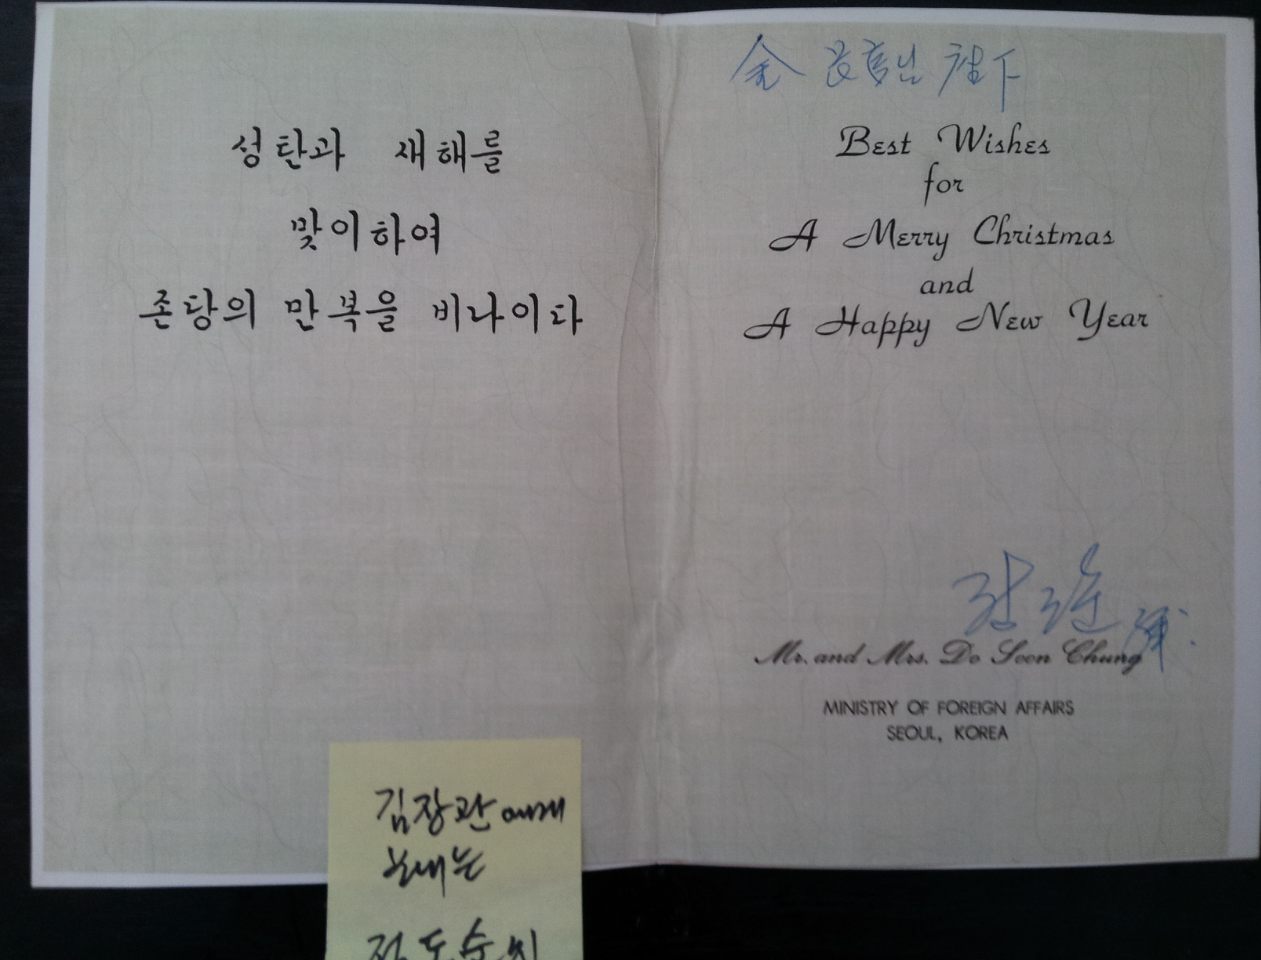 성탄과 새해를
맞이하여
존당의 만복을 비나이다
金 長官님 座下
Best Wishes
for
A Merry Christmas
and
A Happy New Year
Mr. and Mrs. Do Soon Chung
MINISTRY OF FOREIGN AFFAIRS
SEOUL, KOREA
김장관에게
보내는
정도순씨